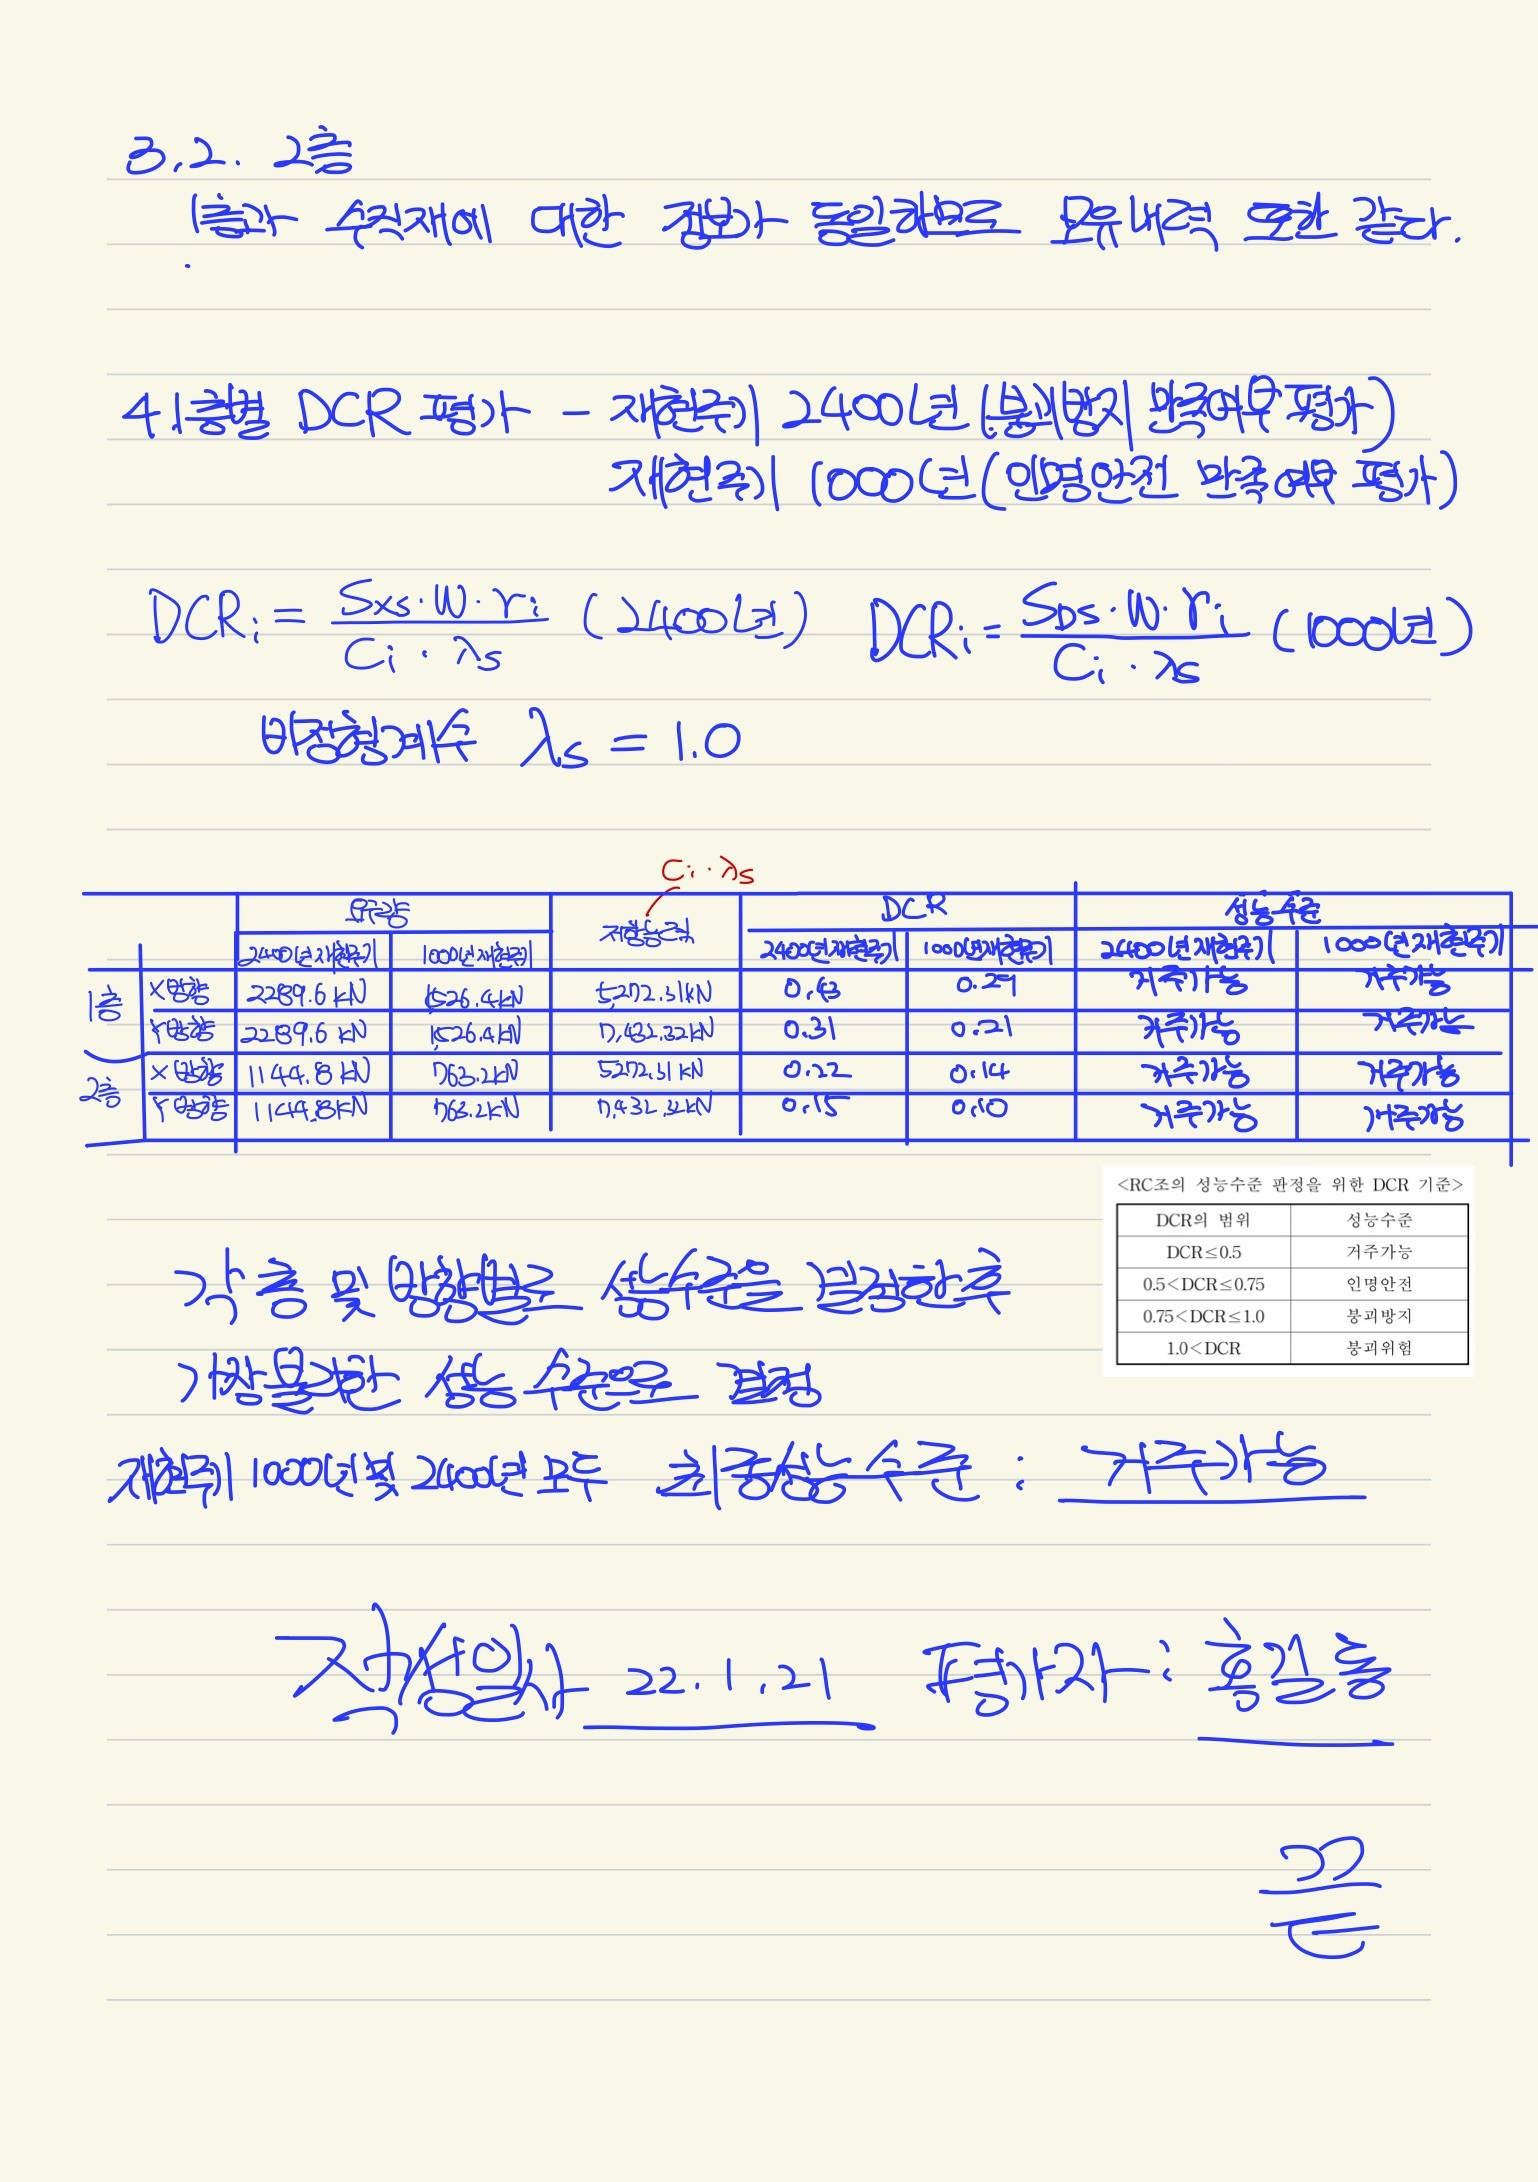 3.2. 2층
1층과 수직재에 대한 정보가 동일하므로 보유내력 또한 같다.
4. 층별 DCR 평가 - 재현주기 2400년 (붕괴방지 만족여부 평가)
재현주기 1000년 (인명안전 만족여부 평가)
DCRi = Sxs·W·ri / Ci·λs (2400년) DCRi = SDs·W·ri / Ci·λs (1000년)
비정형계수 λs = 1.0
Ci·λs
요구량 저항능력 DCR 성능수준
2400년재현주기 1000년재현주기 2400년재현주기 1000년재현주기 2400년재현주기 1000년재현주기
1층 X방향 2289.6 kN 1,526.4kN 5,272.31kN 0.43 0.29 거주가능 거주가능
Y방향 2289.6 kN 1,526.4kN 7,432.32kN 0.31 0.21 거주가능 거주가능
2층 X방향 1144.8 kN 763.2kN 5272.31kN 0.22 0.14 거주가능 거주가능
Y방향 1144.8kN 763.2kN 7,432.32kN 0.15 0.10 거주가능 거주가능
<RC조의 성능수준 판정을 위한 DCR 기준>
DCR의 범위 성능수준
DCR≤0.5 거주가능
0.5<DCR≤0.75 인명안전
0.75<DCR≤1.0 붕괴방지
1.0<DCR 붕괴위험
각 층 및 방향별로 성능수준을 결정한 후
가장 불리한 성능 수준으로 결정
재현주기 1000년 및 2400년 모두 최종성능수준 : 거주가능
작성일자 22.1.21 평가자 : 홍길동
끝